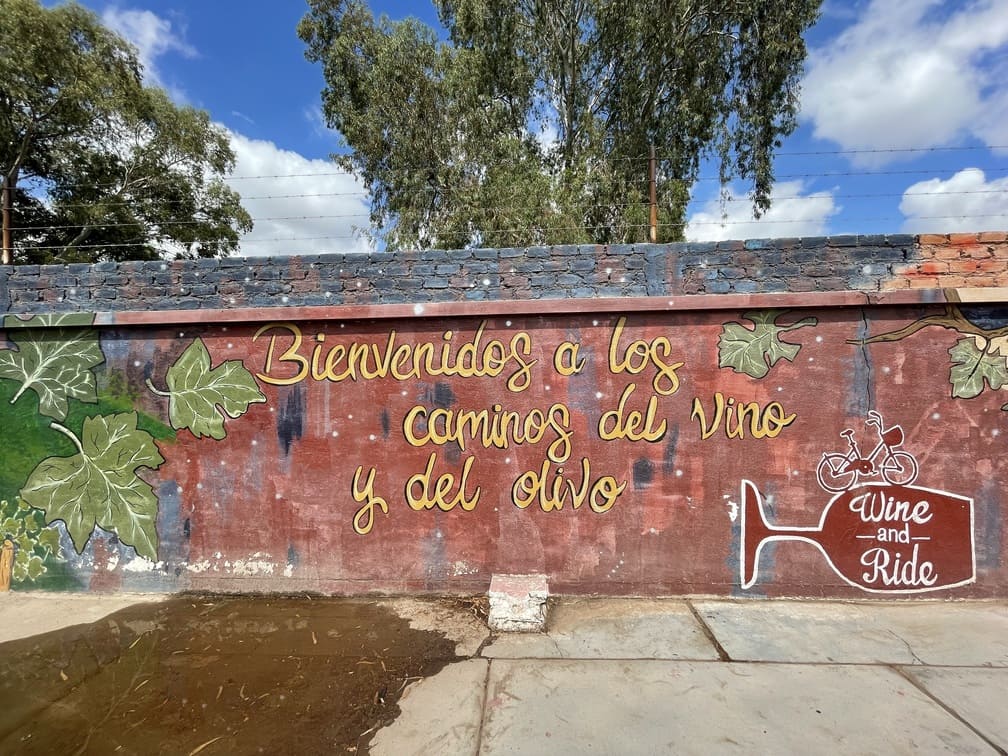 Bienvenidos a los
caminos del vino
y del olivo
Wine
and
Ride